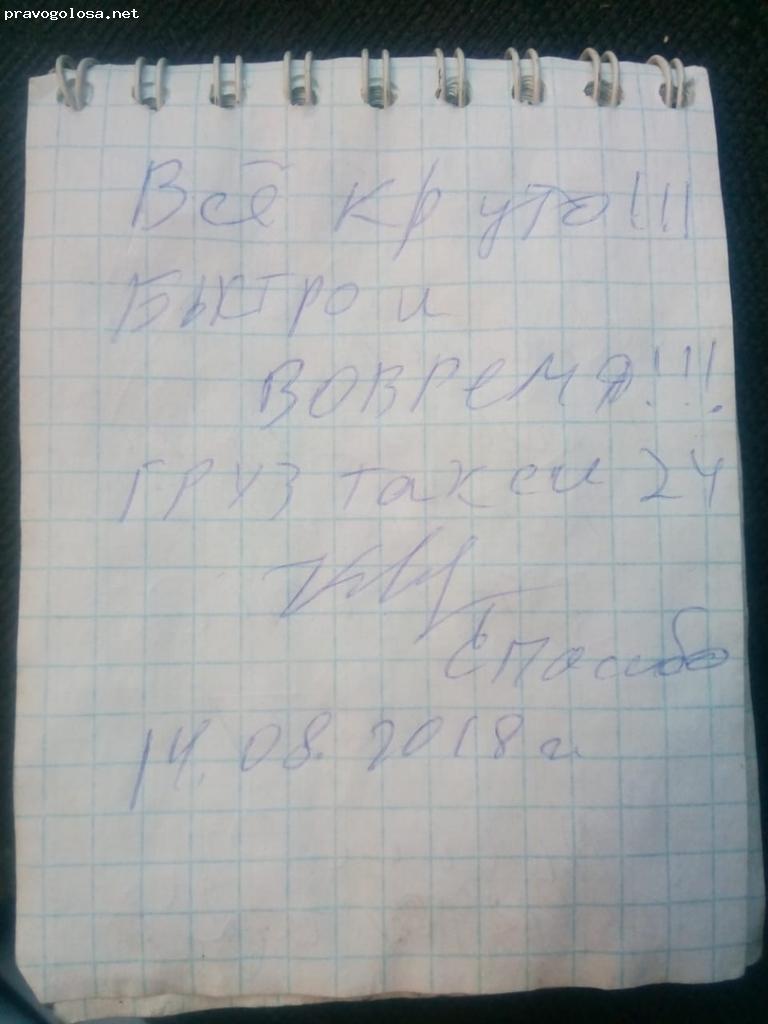 pravogolosa.net
Всё круто!!!
Быстро и
вовремя!!!
Груз такси 24
Спасибо
14.08.2018 г.